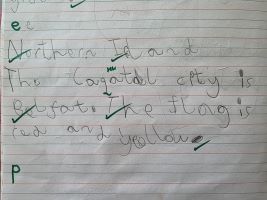 e e
Northern Island
The Capatal city is
Belfat. The flag is
red and yellow.
P